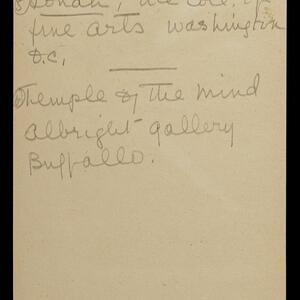 Jonah, the of
fine arts washington
D.C.
Temple of The mind
albright gallery
Buffallo.